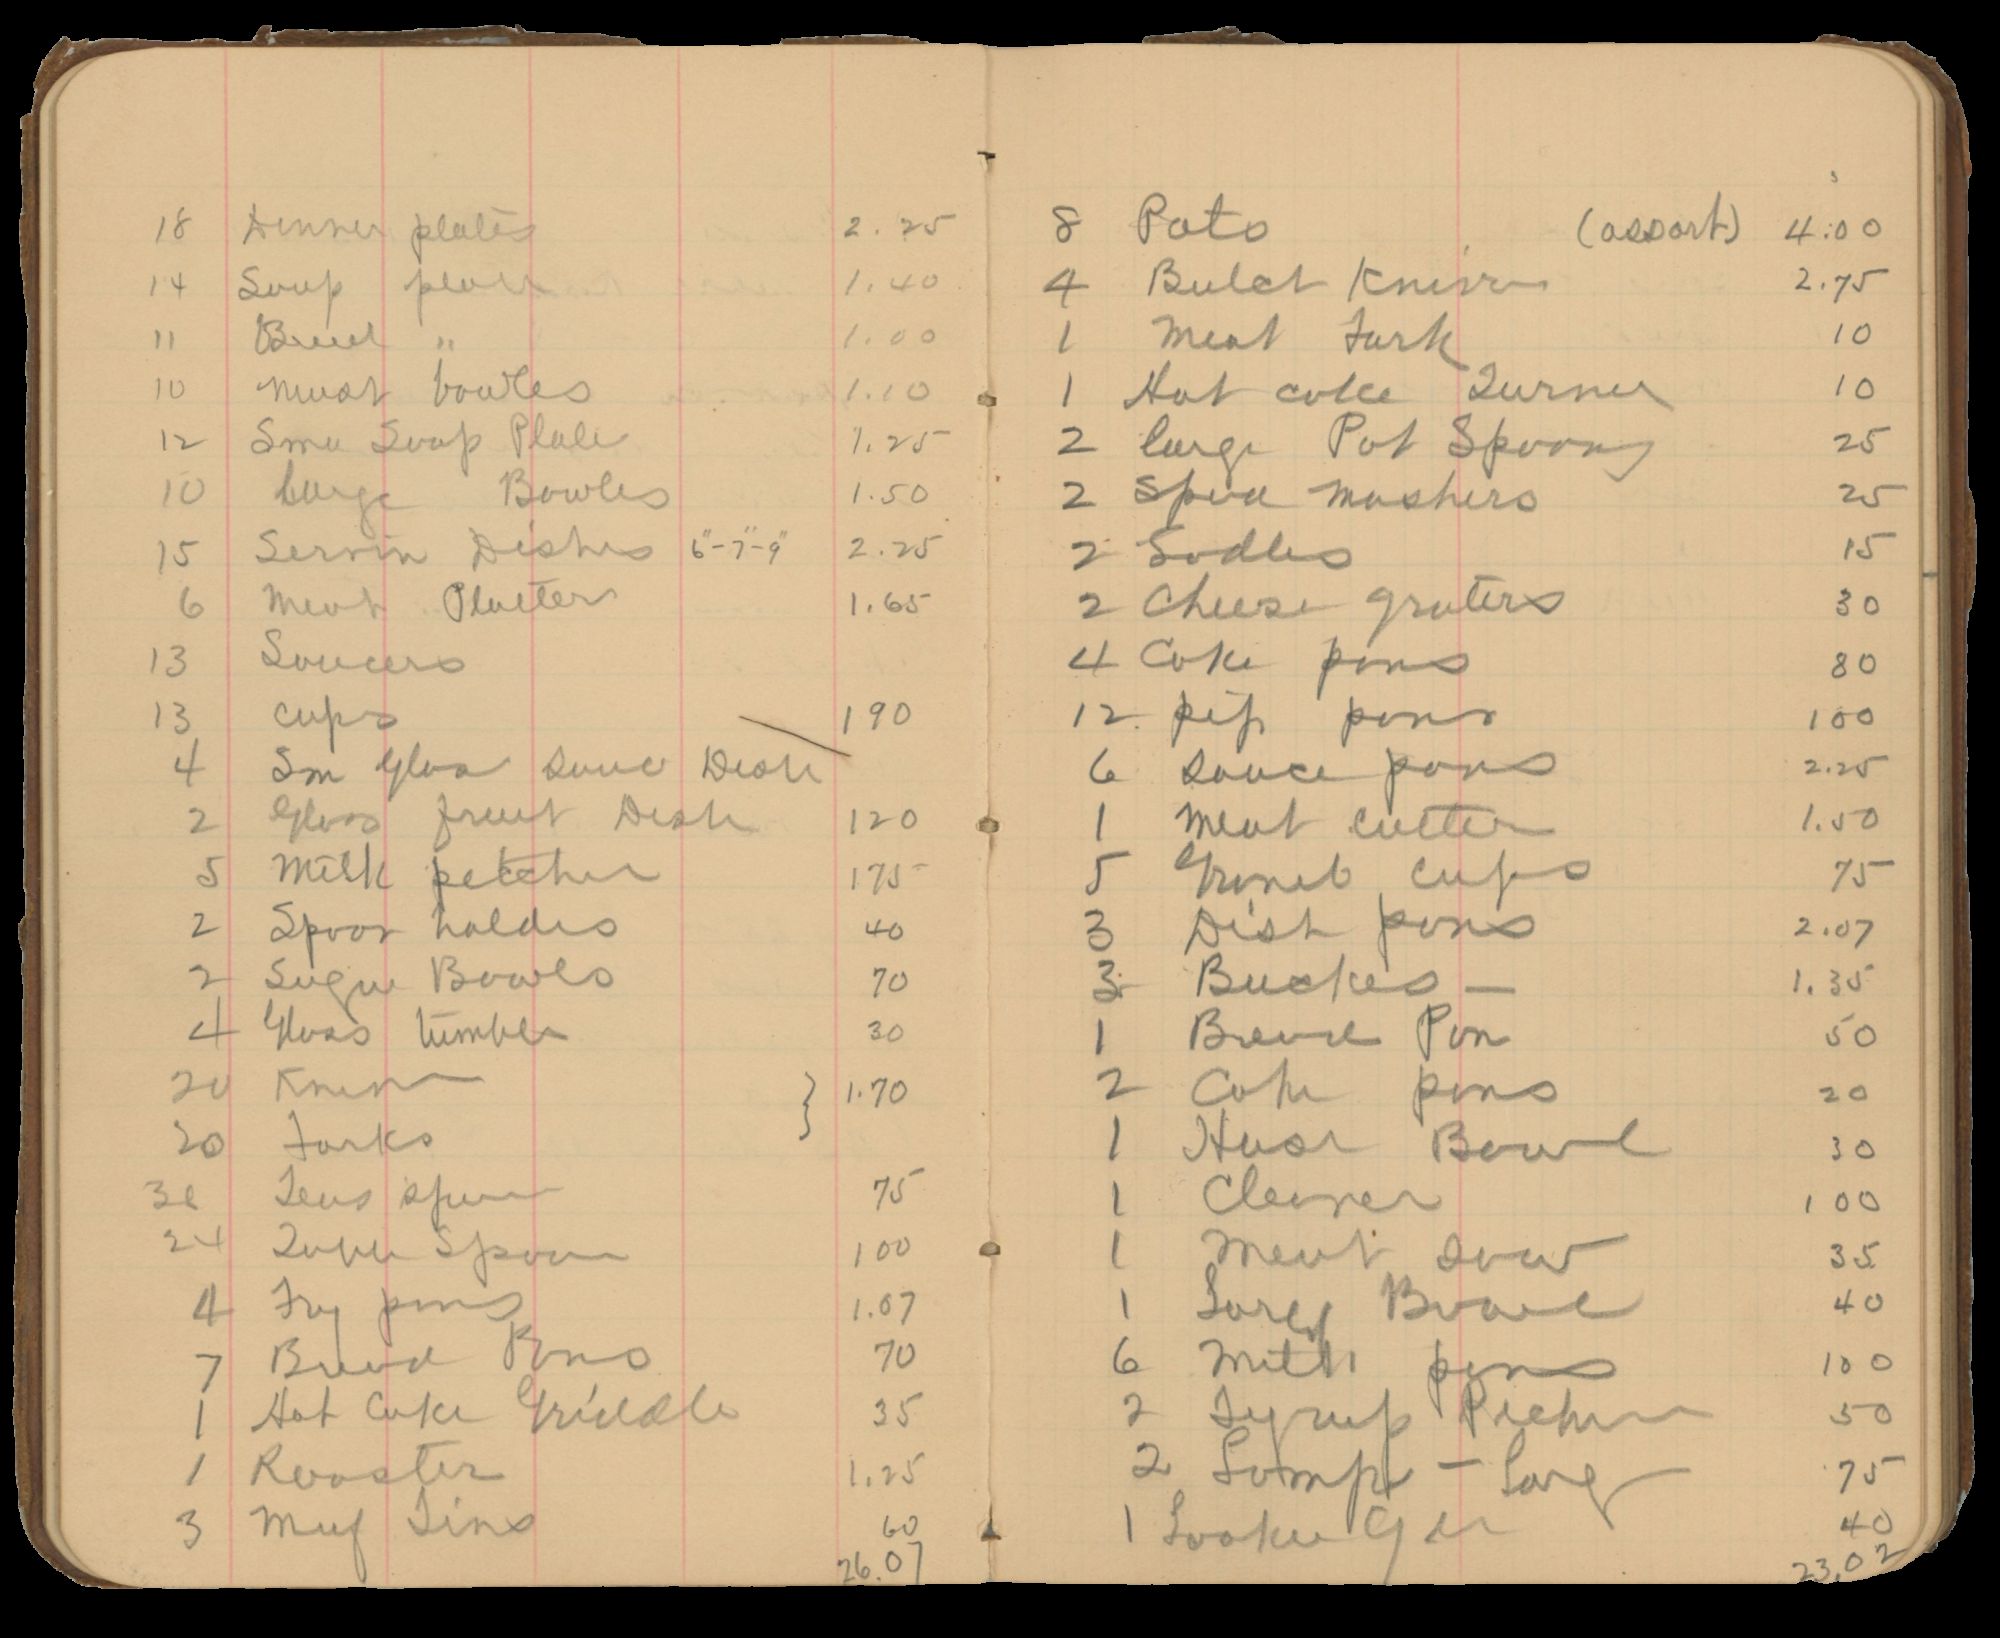 18 Dinner plates 2.25
14 Soup plats 1.40
11 Bred " 1.00
10 Mush bowles 1.10
12 Sma Soup Plate 1.25
10 Large Bowles 1.50
15 Servin Dishes 6"-7"-9" 2.25
6 Meat Platters 1.65
13 Saucers
13 cups 190
4 Sm Glass Sauce Dish
2 Glass fruit Dish 120
5 Milk petcher 175
2 Spoon holdes 40
2 Sugar Bowls 70
4 Glass tumbler 30
20 Knives } 1.70
20 Forks
Teas spoon 75
24 Table Spoon 100
4 Fry pans 1.07
7 Bread Pans 70
1 Hot Cake Griddle 35
1 Roaster 1.25
3 Muf Tins 60
26.07
8 Pots (assort) 4.00
4 Butch Knives 2.75
1 Meat Fork 10
1 Hot cake Turner 10
2 large Pot Spoons 25
2 Spud mashers 25
2 Ladles 15
2 Cheese graters 30
4 Cake pans 80
12 pip pans 100
6 Sauce pans 2.25
1 Meat cutter 1.50
5 Granit cups 75
3 Dish pans 2.07
3 Buckes — 1.35
1 Bread Pan 50
2 Cake pans 20
1 Bowl 30
1 Cleaner 100
1 Meat saw 35
1 Larg Bowl 40
6 Milk pans 100
2 Syrup Picher 50
2 Lamps - Larg 75
1 40
23.02